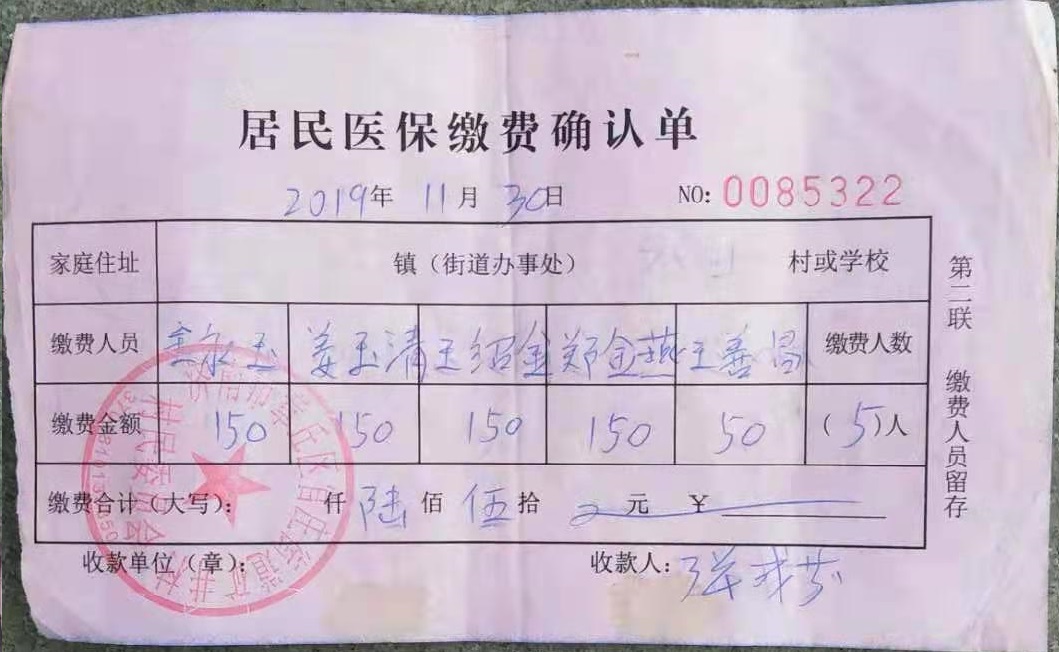 居民医保缴费确认单
2019年 11月 30日 NO: 0085322
家庭住址 镇（街道办事处） 村或学校
缴费人员 永玉 姜玉清 王绍金 郑金燕 王善昌 缴费人数
缴费金额 150 150 150 150 50 （5）人
缴费合计（大写）： 仟 陆 佰 伍 拾 元 ¥
收款单位（章）： 收款人：
第二联 缴费人员留存
村民委员会